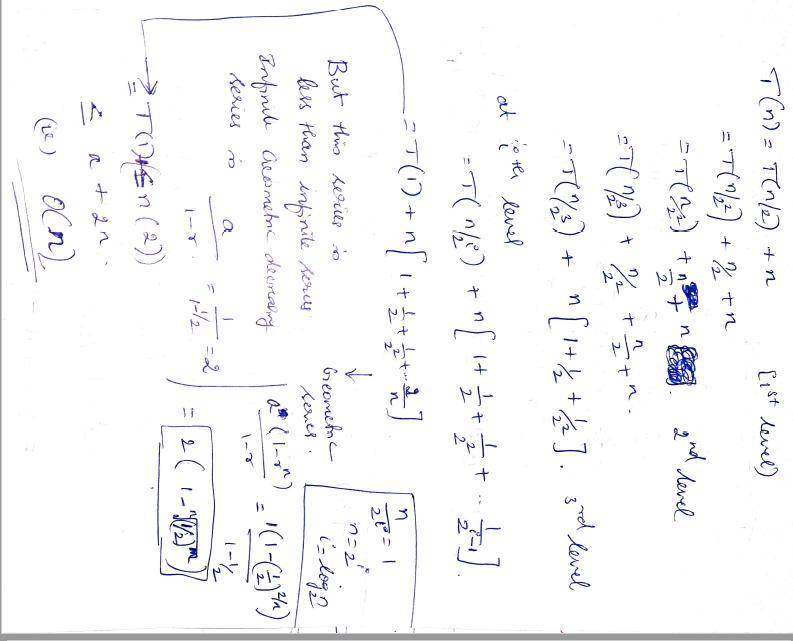 T(n) = T(n/2) + n [1st level)
= T(n/2²) + n/2 + n
= T(n/2²) + n/2 + n . 2nd level
= T(n/2³) + n/2² + n/2 + n .
= T(n/2³) + n [1 + 1/2 + 1/2²] . 3rd level
at i th level
= T(n/2^i) + n [1 + 1/2 + 1/2² + ... 1/2^i-1] .
n/2^i = 1
n = 2^i
i = log₂n
= T(1) + n [1 + 1/2 + 1/2² + ... 2/n]
↓
Geometric
series.
But this series is
less than infinite series
Infinite Geometric decreasing
series is a/1-r. = 1/1-1/2 = 2
(1-r^n)/1-r = 1(1-(1/2)^2/n)/1-1/2
= T(1) n(2))
≤ n + 2n .
(ie) O(n)